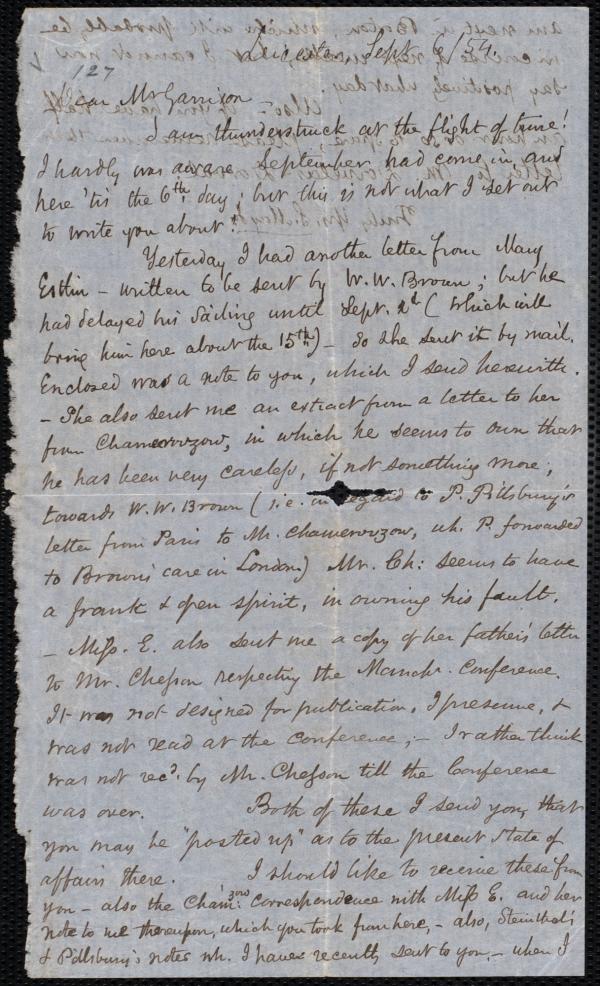 Leicester, Sept. 6/54.
127
Dear Mr Garrison —
I am thunderstruck at the flight of time!
I hardly was aware September had come in, and
here 'tis the 6th day; but this is not what I set out
to write you about!
Yesterday I had another letter from Mary
Estlin — written to be sent by W. W. Brown; but he
had delayed his sailing until Sept. 2d (which will
bring him here about the 15th) — so she sent it by mail.
Enclosed was a note to you, which I send herewith.
— She also sent me an extract from a letter to her
from Chamerovzow, in which he seems to own that
he has been very careless, if not something more,
towards W. W. Brown (i.e. in regard to P. Pillsbury's
letter from Paris to Mr. Chamerovzow, wh. P. forwarded
to Brown's care in London.) Mr. Ch: seems to have
a frank & open spirit, in owning his fault.
— Miss. E. also sent me a copy of her father's letter
to Mr. Chesson respecting the Manchr. Conference.
It was not designed for publication, I presume, &
was not read at the Conference; — I rather think
was not recd. by Mr. Chesson till the Conference
was over. Both of these I send you, that
you may be "posted up" as to the present state of
affairs there. I should like to receive these from
you — also the Cham:zow correspondence with Miss E. and her
note to me thereupon, which you took from here, — also, Steinthal's
& Pillsbury's notes wh. I have recently sent to you, — when I